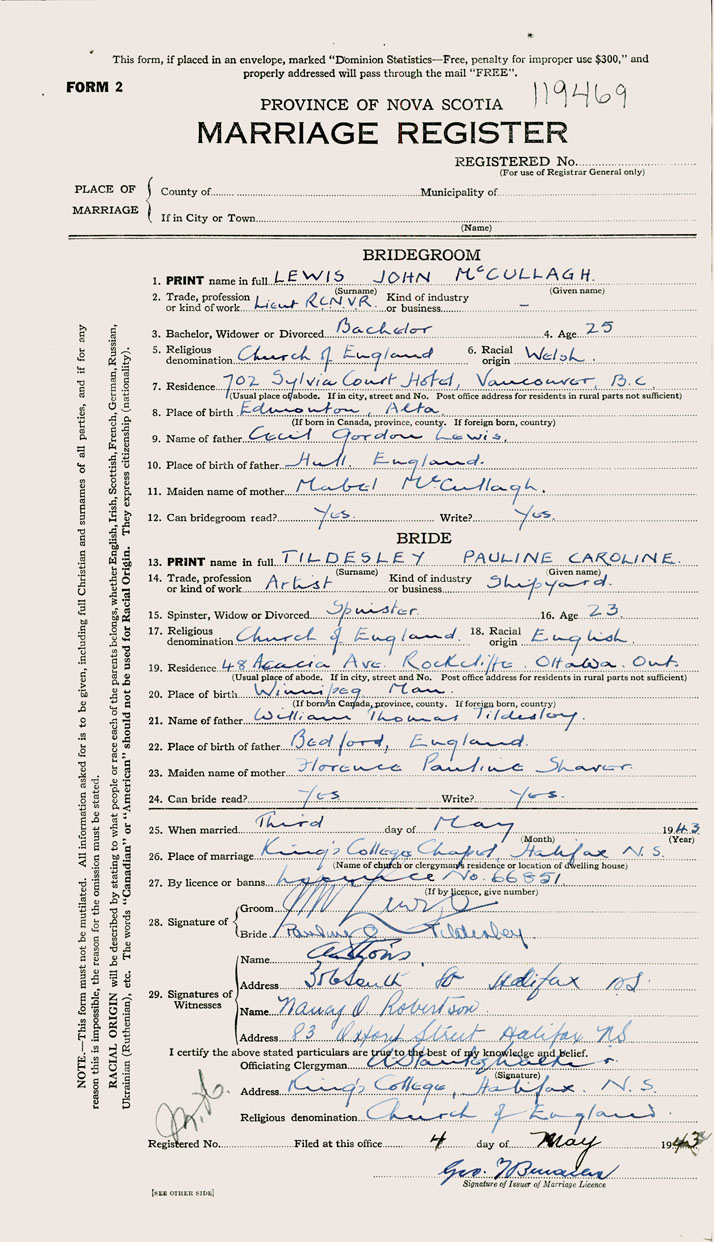 This form, if placed in an envelope, marked "Dominion Statistics—Free, penalty for improper use $300," and
properly addressed will pass through the mail "FREE".
FORM 2
119469
PROVINCE OF NOVA SCOTIA
MARRIAGE REGISTER
REGISTERED No.
(For use of Registrar General only)
PLACE OF MARRIAGE
County of Municipality of
If in City or Town
(Name)
BRIDEGROOM
1. PRINT name in full LEWIS JOHN McCULLAGH.
(Surname) (Given name)
2. Trade, profession or kind of work Lieut R.C.N.V.R. Kind of industry or business –
3. Bachelor, Widower or Divorced Bachelor 4. Age 25
5. Religious denomination Church of England 6. Racial origin Welsh.
7. Residence 702 Sylvia Court Hotel, Vancouver, B.C.
(Usual place of abode. If in city, street and No. Post office address for residents in rural parts not sufficient)
8. Place of birth Edmonton, Alta.
(If born in Canada, province, county. If foreign born, country)
9. Name of father Cecil Gordon Lewis,
10. Place of birth of father Hull, England.
11. Maiden name of mother Mabel McCullagh.
12. Can bridegroom read? Yes. Write? Yes.
BRIDE
13. PRINT name in full TILDESLEY PAULINE CAROLINE.
(Surname) (Given name)
14. Trade, profession or kind of work Artist Kind of industry or business Shipyard.
15. Spinster, Widow or Divorced Spinster 16. Age 23
17. Religious denomination Church of England. 18. Racial origin English.
19. Residence 48 Acacia Ave. Rockcliffe. Ottawa. Ont.
(Usual place of abode. If in city, street and No. Post office address for residents in rural parts not sufficient)
20. Place of birth Winnipeg Man.
(If born in Canada, province, county. If foreign born, country)
21. Name of father William Thomas Tildesley.
22. Place of birth of father Bedford, England.
23. Maiden name of mother Florence Pauline Shaver.
24. Can bride read? Yes Write? Yes.
25. When married Third day of May 1943
(Month) (Year)
26. Place of marriage King's College Chapel, Halifax N.S.
(Name of church or clergyman's residence or location of dwelling house)
27. By licence or banns No. 66851
(If by licence, give number)
28. Signature of
Groom Lewis
Bride Pauline C Tildesley
29. Signatures of Witnesses
Name
Address South St Halifax NS.
Name Nancy O. Robertson
Address 83 Oxford Street Halifax NS
I certify the above stated particulars are true to the best of my knowledge and belief.
Officiating Clergyman
(Signature)
Address King's College, Halifax. N.S.
Religious denomination Church of England.
Registered No. Filed at this office 4 day of May 1943
Geo.
Signature of Issuer of Marriage Licence
[SEE OTHER SIDE]
NOTE.—This form must not be mutilated. All information asked for is to be given, including full Christian and surnames of all parties, and if for any
reason this is impossible, the reason for the omission must be stated.
RACIAL ORIGIN will be described by stating to what people or race each of the parents belongs, whether English, Irish, Scottish, French, German, Russian,
Ukrainian (Ruthenian), etc. The words "Canadian" or "American" should not be used for Racial Origin. They express citizenship (nationality).